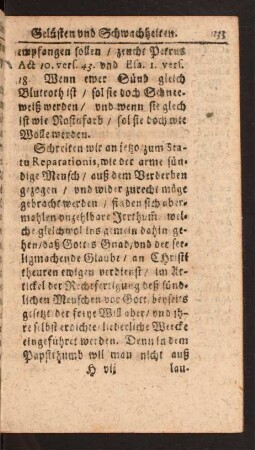 Gelüsten vnd Schwachheiten.
empfangen sollen / zeucht Petrus
Act 10. vers. 43. vnd Esa. 1. vers.
18. Wenn ewer Sünd gleich
Blutroth ist / sol sie doch Schnee-
weiß werden / vnd wenn sie glech
ist wie Rosinfarb / sol sie doch wie
Wolle werden.
Schreiten wir an jetzo zum Sta-
tu Reparationis, wie der arme sün-
dige Mensch / auß dem Verderben
gezogen / vnd wider zurecht möge
gebracht werden / finden sich aber-
mahlen vnzehlbare Irrthum / wel-
che gleichwol ins gemein dahin ge-
hen / daß Gottes Gnad / vnd der see-
ligmachende Glaube / an Christi
theuren ewigen verdienst / im Ar-
tickel der Rechtfertigung deß sünd-
lichen Menschen vor Gott, beyseits
gesetzt der freye Will aber / vnd ih-
re selbst erdichte liederliche Wercke
eingeführet werden. Denn in dem
Papsthumb wil man nicht auß
H vij lau-